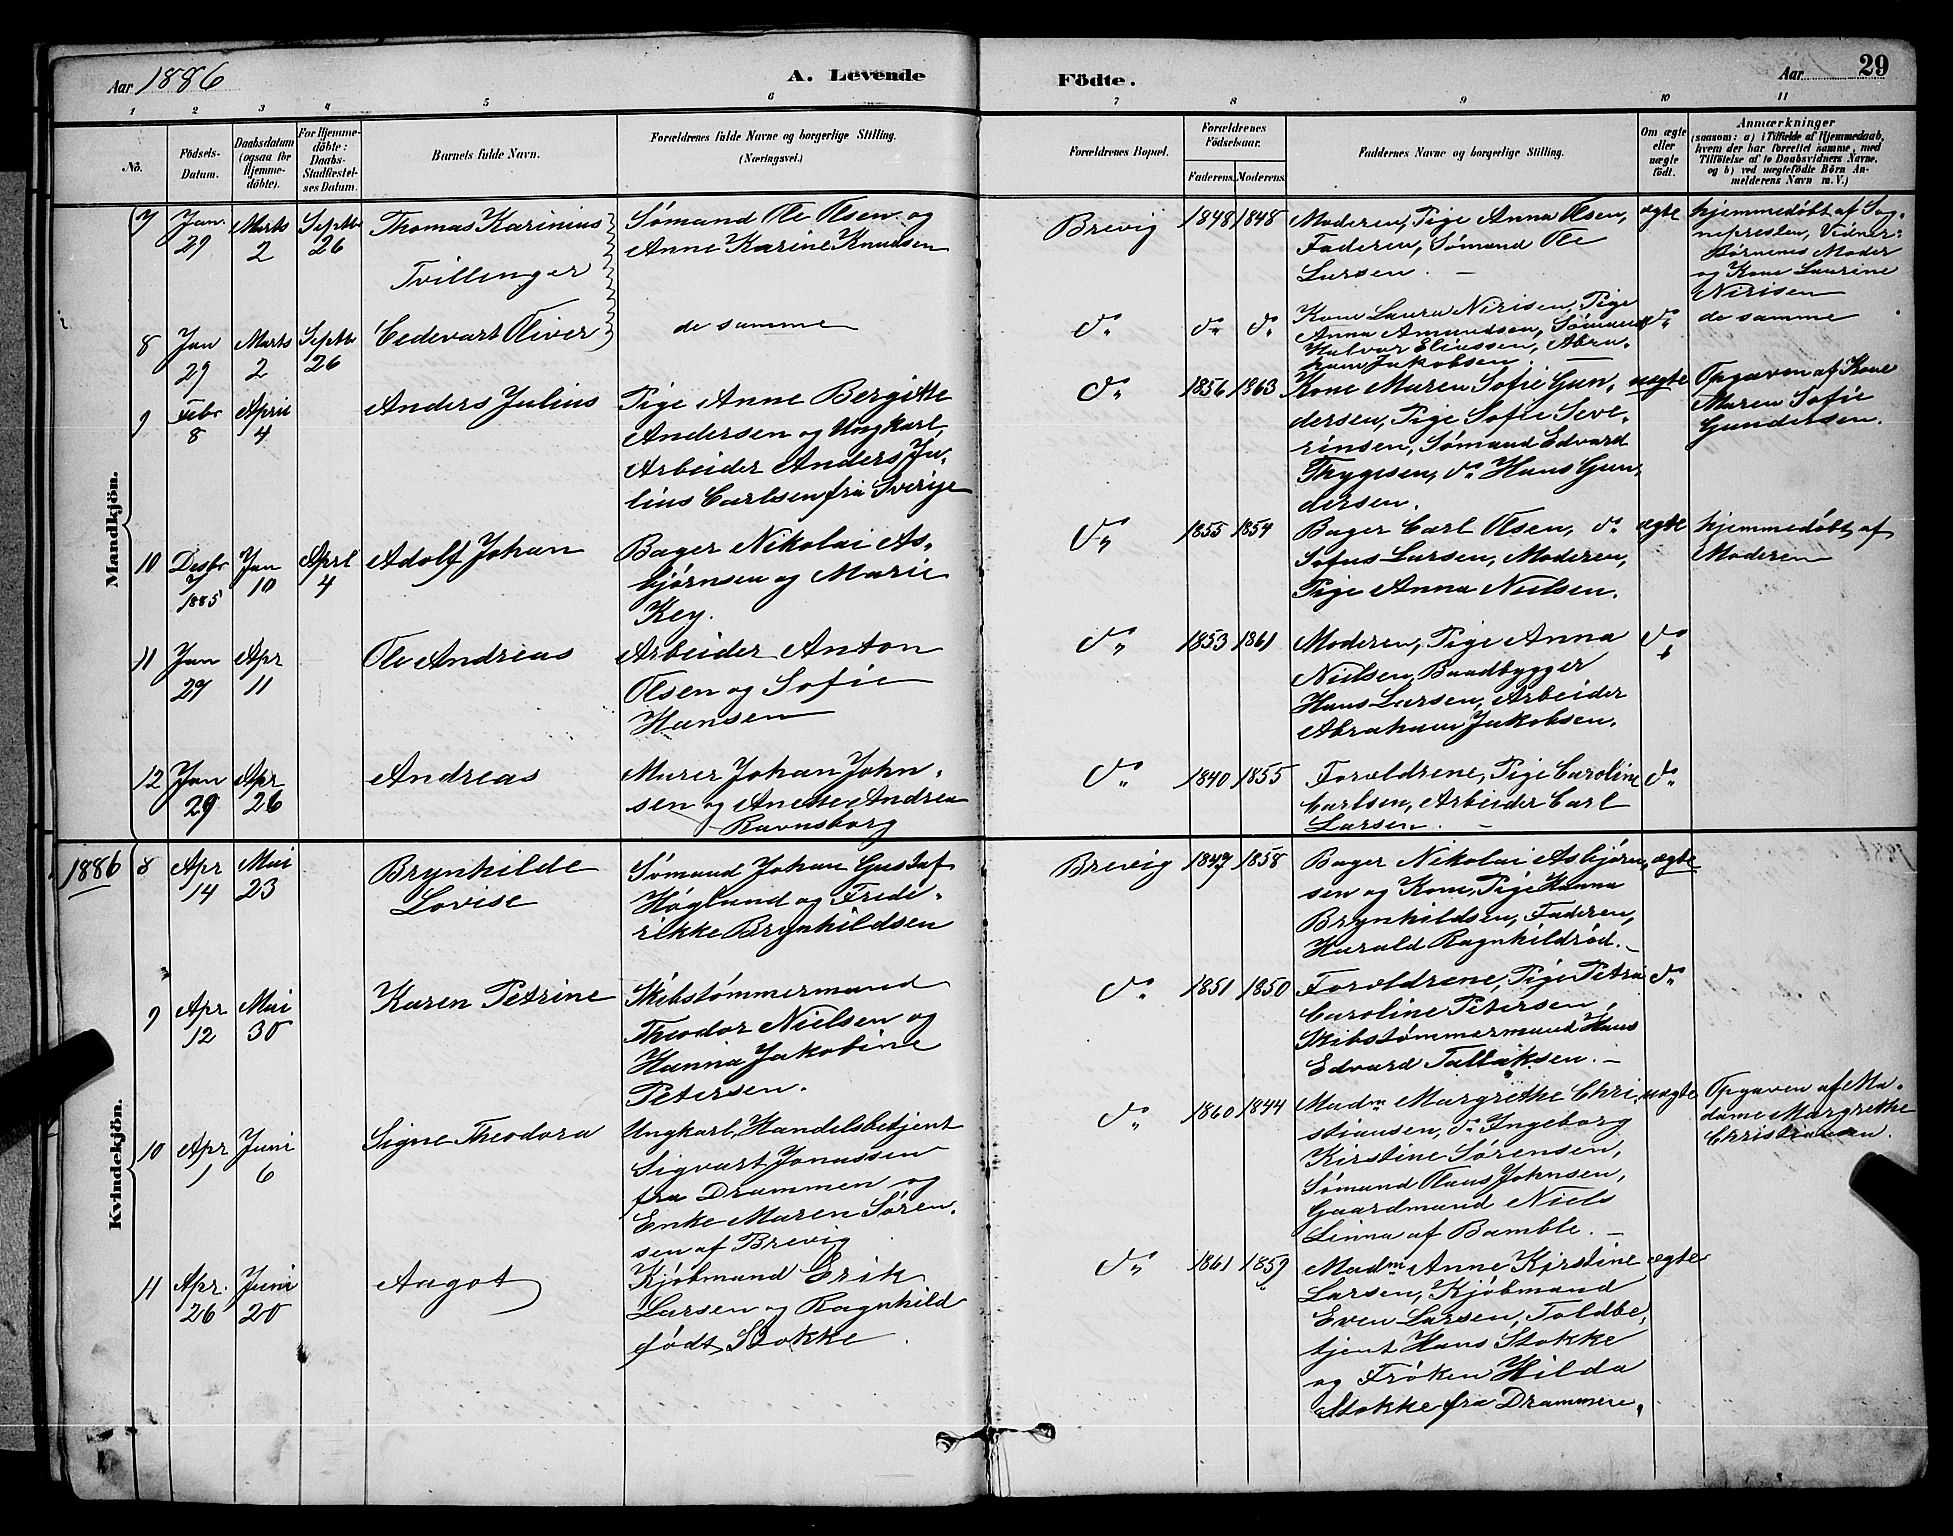 Aar 1886 A. Levende Födte. Aar 29
1 2 3 4 5 6 7 8 9 10 11
No. Födsels-Datum. Daabsdatum (ogsaa for Hjemmedöbte). For Hjemmedöbte: Daabs-Stadfæstelses Datum. Barnets fulde Navn. Forældrenes fulde Navne og borgerlige Stilling. (Næringsvei.) Forældrenes Bopæl. Forældrenes Födselsaar. Faderens. Moderens. Faddernes Navne og borgerlige Stilling. Om ægte eller uægte födt. Anmærkninger (saasom: a) i Tilfælde af Hjemmedaab, hvem der har forrettet samme, med Tilföielse af to Daabsvidners Navne, og b) ved uægtefödte Börn Anmelderens Navn m. V.)
Mandkjön.
7 Jan. 29 Marts 2 Septbr 26 Thomas Karinius
Tvillinger
Sømand Ole Olsen og
Anne Karine Knudsen
Brevig 1848 1848
Moderen, Pige Anna Olsen,
Faderen, Sømand Ole
Larsen. —
ægte
hjemmedøbt af Sog-
nepresten, Vidner:
Børnenes Moder
og Kone Laurine
Nirisen
8 Jan 29 Marts 2 Septbr 26 Cedevart Oliver
de samme
do do do
Kone Laura Nirisen, Pige
Anna Amundsen, Sømand
Halvor Eliassen, Abra-
ham Jakobsen.
do
do samme
9 Febr 8 April 4 Anders Julius
Pige Anne Bergitte
Andersen og Ungkarl
Arbeider Anders Ju-
lius Carlsen fra Sverije
do 1856 1863
Kone Maren Sofie Gun-
dersen, Pige Sofie Seve-
rinsen, Sømand Edvard
Thygesen, do Hans Gun-
dersen.
uægte
Opgaven af Kone
Maren Sofie
Gundersen.
10 Desbr 7 1885 Jan 10 Aprl 4 Adolf Johan
Bager Nikolai As-
bjørnsen og Marie
Key.
do 1855 1854
Bager Carl Olsen, do
Sofus Larsen, Moderen,
Pige Anna Nielsen.
ægte
hjemmedøbt af
Moderen
11 Jan 29 Apr 11 Ole Andreas
Arbeider Anton
Olsen og Sofie
Hansen
do 1853 1861
Moderen, Pige Anna
Nielsen, Baadbygger
Hans Larsen, Arbeider
Abraham Jakobsen.
do
12 Jan 29 Apr 26 Andreas
Murer Johan John-
sen og Anette Andrea
Ravnsborg
do 1840 1855
Forældrene, Pige Caroline
Carlsen, Arbeider Carl
Larsen. —
do
1886
Kvindekjön.
8 Apr 14 Mai 23 Brynhilde
Lovise
Sømand Johan Gustaf
Høglund og Frede-
rikke Brynhildsen
Brevig 1847 1858
Bager Nikolai Asbjørn-
sen og Kone, Pige Hanna
Brynhildsen, Faderen,
Harald Ragnhildrød. —
ægte
9 Apr 12 Mai 30 Karen Petrine
Skibstømmermand
Theodor Nielsen og
Hanna Jakobine
Petersen.
do 1851 1850
Forældrene, Pige Petra
Caroline Petersen,
Skibstømmermand Hans
Edvard Tallaksen. —
do
10 Apr 1 Juni 6 Signe Theodora
Ungkarl, Handelsbetjent
Sigvart Jonassen
fra Drammen og
Enke Maren Søren-
sen af Brevig
do 1860 1844
Madm Margrethe Chri-
stiansen, do Ingeborg
Kirstine Sørensen,
Sømand Claus Johnsen,
Gaardmand Niels
Linna af Bamble. —
uægte
Opgaven af Ma-
dame Margrethe
Christiansen.
11 Apr. 26 Juni 20 Aagot
Kjøbmand Erik
Larsen og Ragnhild
født Stokke
do 1861 1859
Madm Anne Kirstine
Larsen, Kjøbmand
Even Larsen, Toldbe-
tjent Hans Stokke
og Frøken Hilda
Stokke fra Drammen.
ægte